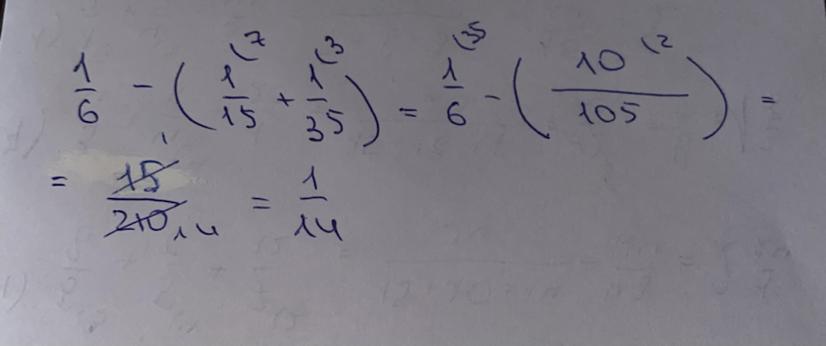 1/6 - (1/15 (7 + 1/35 (3) = 1/6 (35 - (10/105 (2) =
= 15/210 1 14 = 1/14